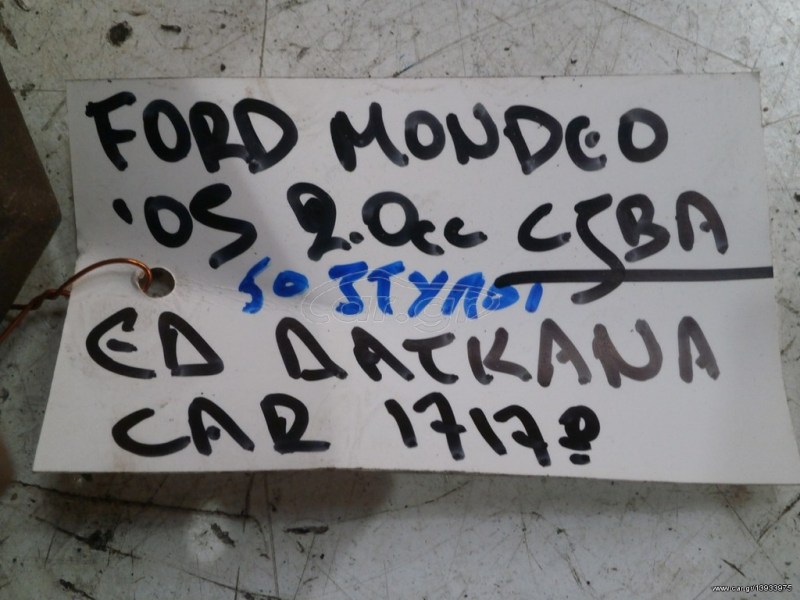 FORD MONDEO
'05 2.0cc CJBA
50 ΣΤΥΛΟΙ
ED ΔΑΓΚΑΝΑ
CAR 17170
www.car.gr/13933975